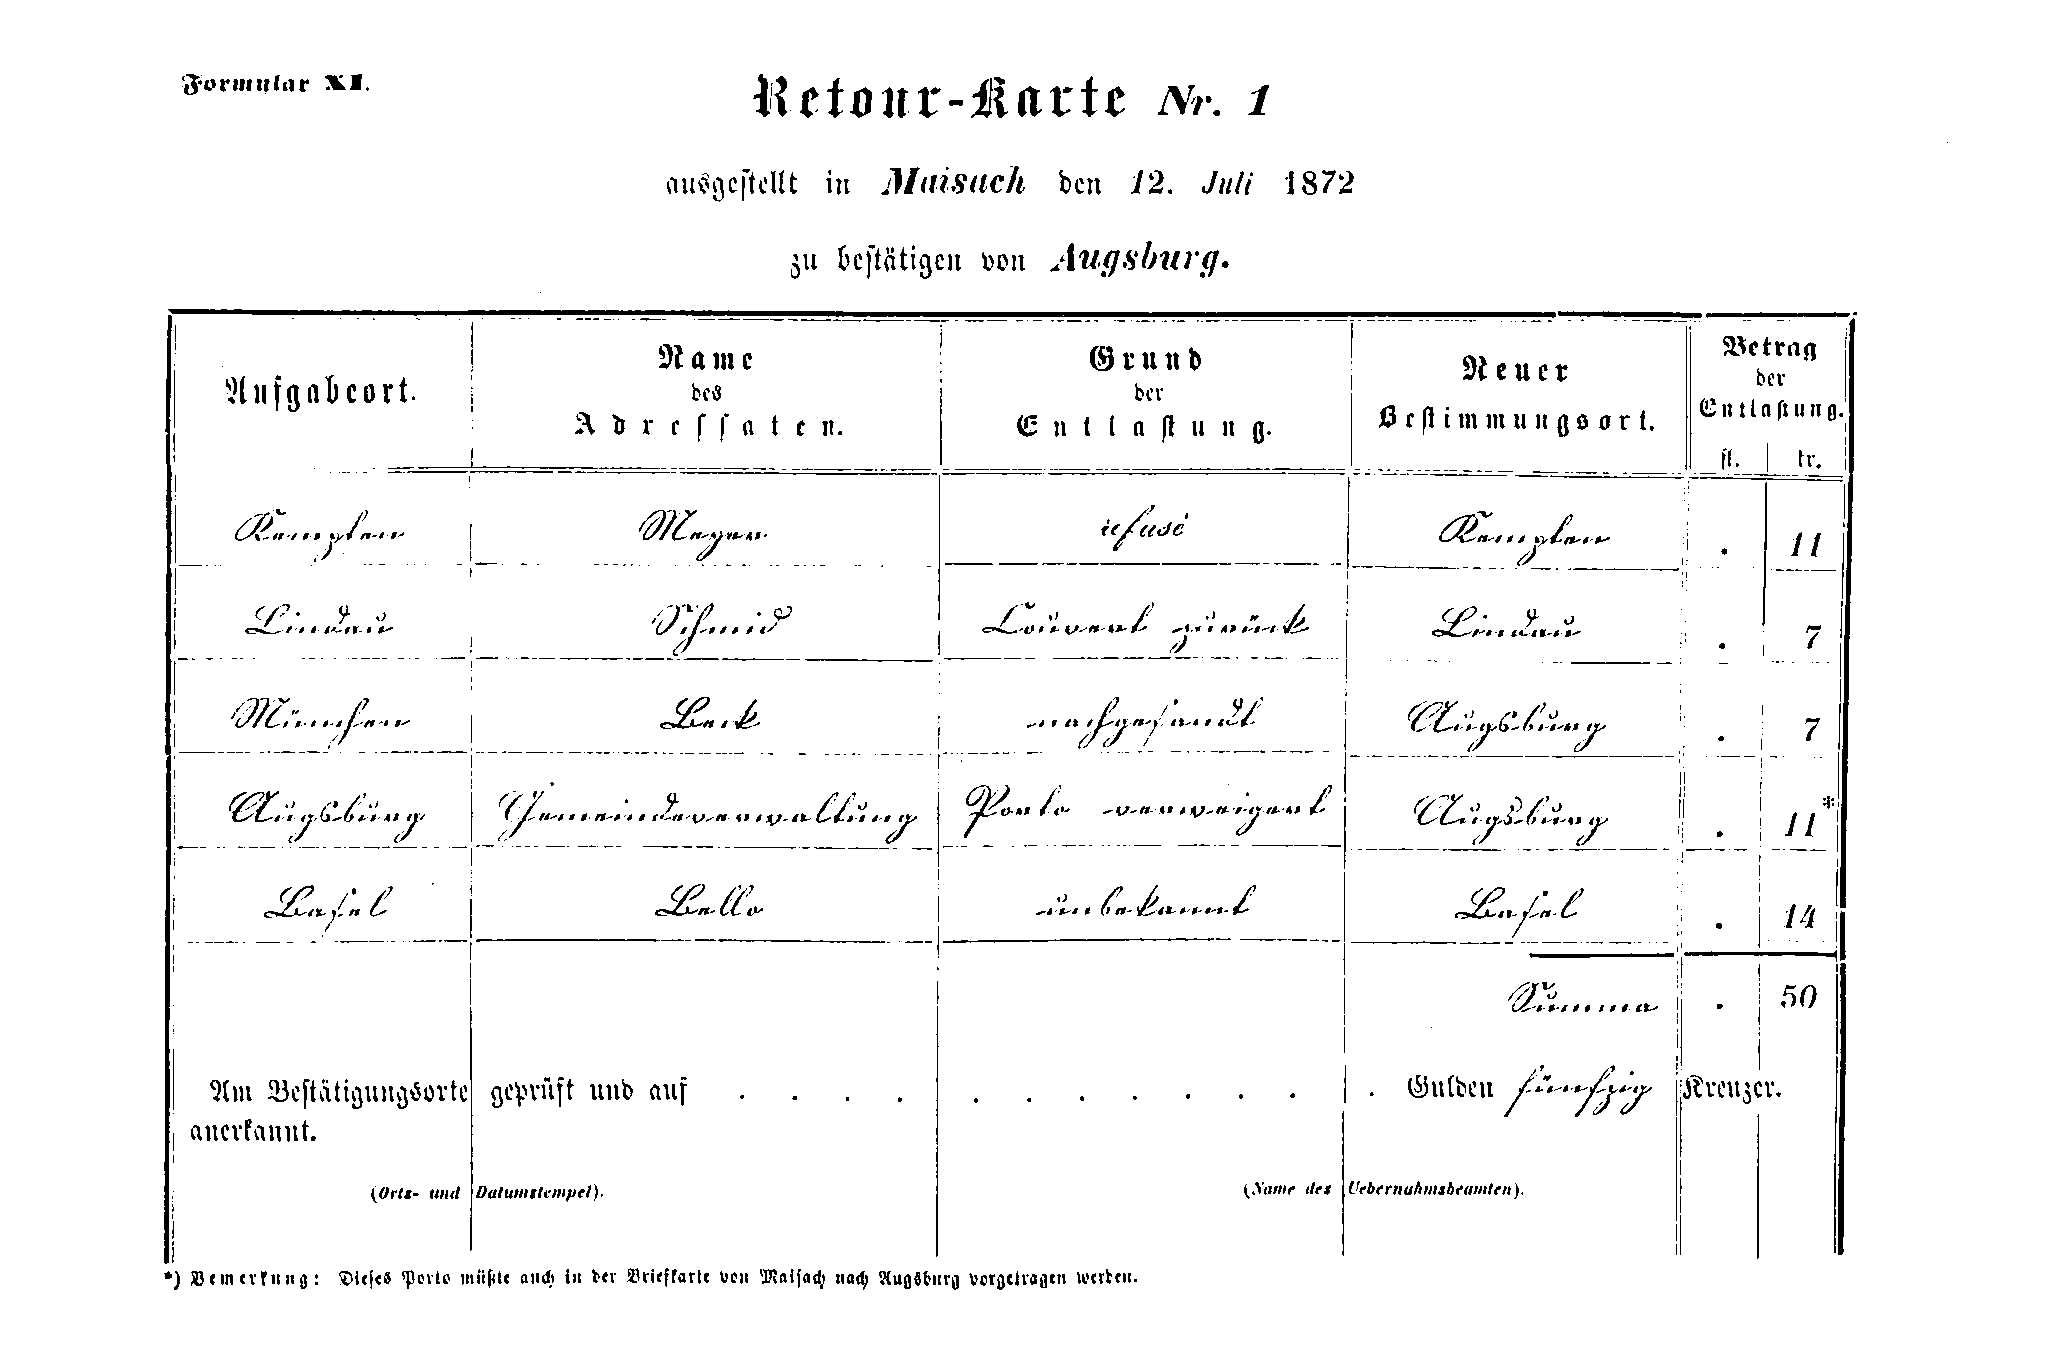 Formular XI.
Retour-Karte Nr. 1
ausgestellt in Maisach den 12. Juli 1872
zu bestätigen von Augsburg.
Aufgabeort. Name des Adressaten. Grund der Entlastung. Neuer Bestimmungsort. Betrag der Entlastung.
fl. kr.
Kempten Meyer refusé Kempten . 11
Lindau Schmid Couvert zurück Lindau . 7
München Beck nachgesandt Augsburg . 7
Augsburg Gemeindeverwaltung Porto verweigert Augsburg . 11*
Basel Bello unbekannt Basel . 14
Summa . 50
Am Bestätigungsorte geprüft und auf . . . . . . . . . . . . Gulden fünfzig Kreuzer.
anerkannt.
(Orts- und Datumstempel). (Name des Uebernahmsbeamten).
*) Bemerkung: Dieses Porto müßte auch in der Briefkarte von Maisach nach Augsburg vorgetragen werden.